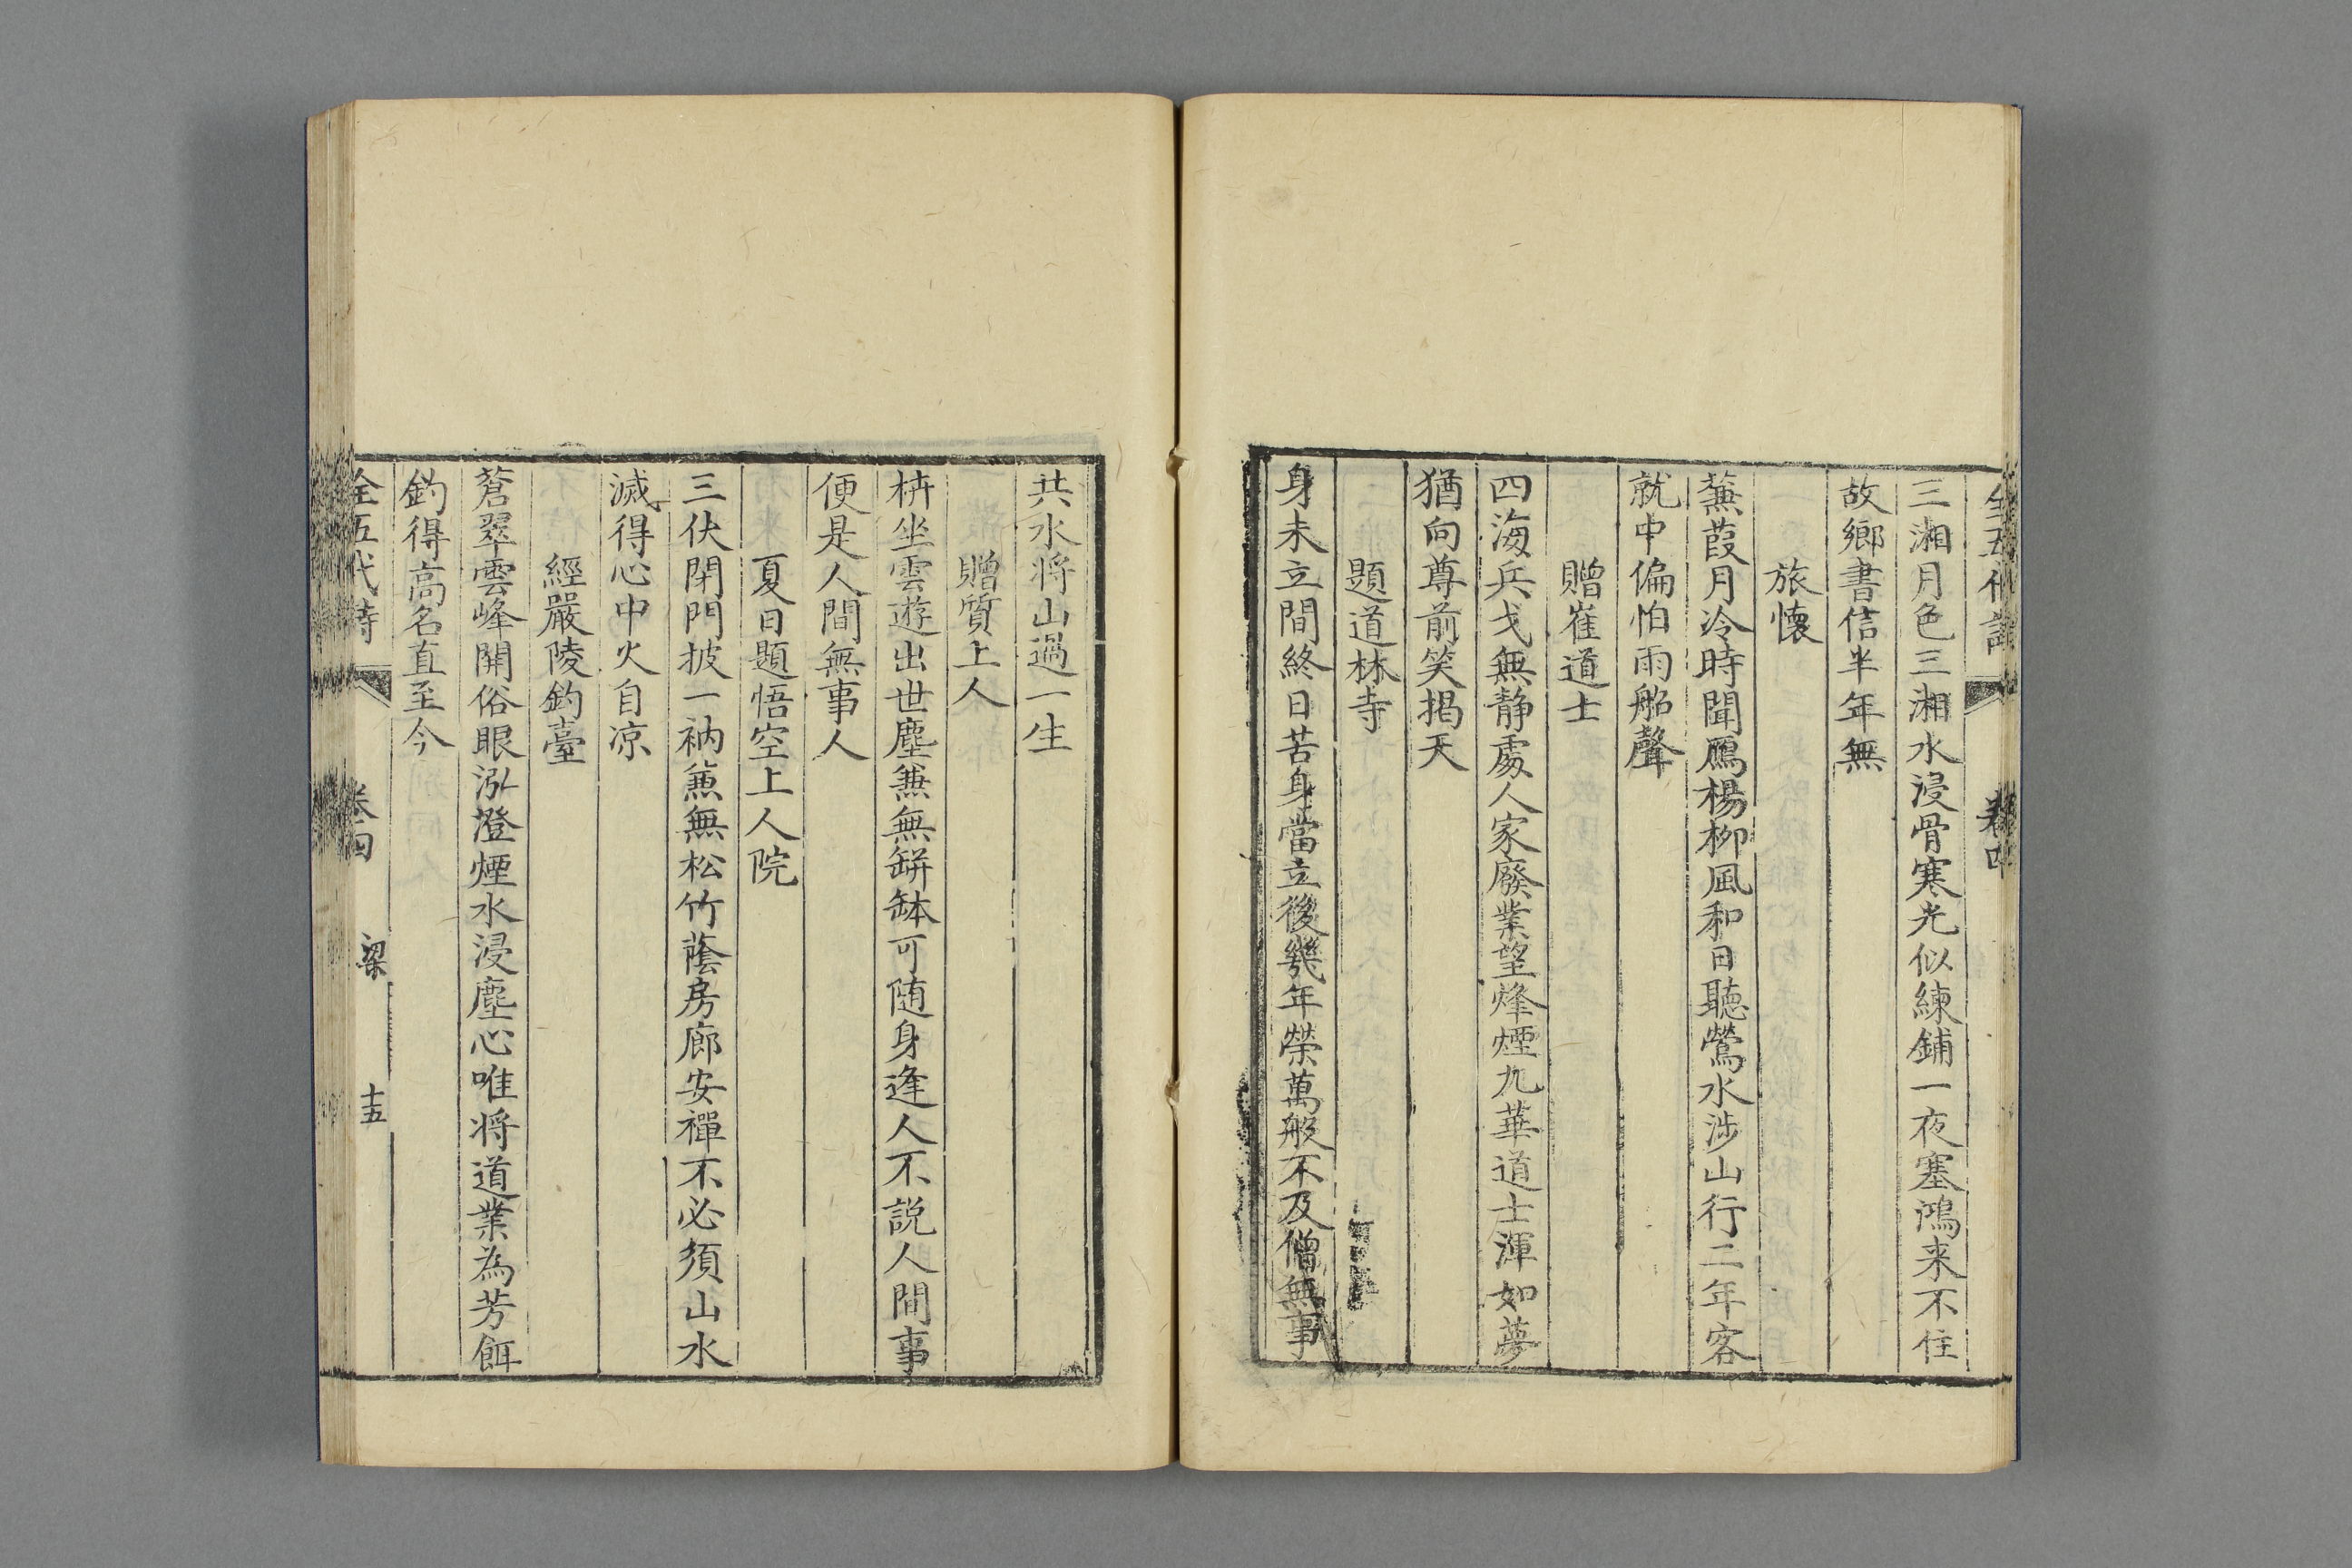 全五代詩 卷四
三湘月色三湘水浸骨寒光似練鋪一夜塞鴻来不住
故鄉書信半年無
旅懷
蒹葭月冷時聞鴈楊柳風和日聽鶯水涉山行二年客
就中偏怕雨船聲
贈崔道士
四海兵戈無静處人家廢業望烽煙九華道士渾如夢
猶向尊前笑揭天
題道林寺
身未立間終日苦身當立後幾年榮萬般不及僧無事
共水将山過一生
贈質上人
枿坐雲遊出世塵兼無缾鉢可随身逢人不説人間事
便是人間無事人
夏日題悟空上人院
三伏閉門披一衲蒹無松竹蔭房廊安禪不必須山水
滅得心中火自凉
經嚴陵釣臺
蒼翠雲峰開俗眼泓澄煙水浸塵心唯将道業為芳餌
釣得高名直至今
全五代詩 卷四 梁 十五